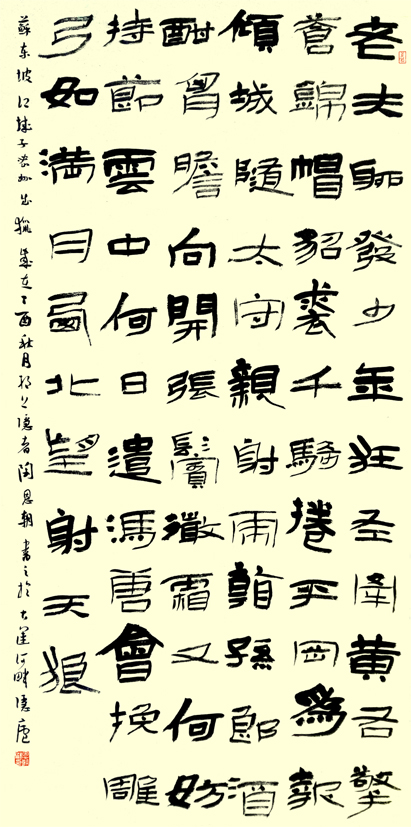 老夫聊發少年狂左牽黃右擎
蒼錦帽貂裘千騎捲平岡為報
傾城隨太守親射虎看孫郎酒
酣胷膽向開張鬢微霜又何妨
持節雲中何日遣馮唐會挽雕
弓如滿月西北望射天狼
蘇東坡江城子密州出獵 歲在丁酉秋月隱者閆恩朝書之於大運河畔隱廬